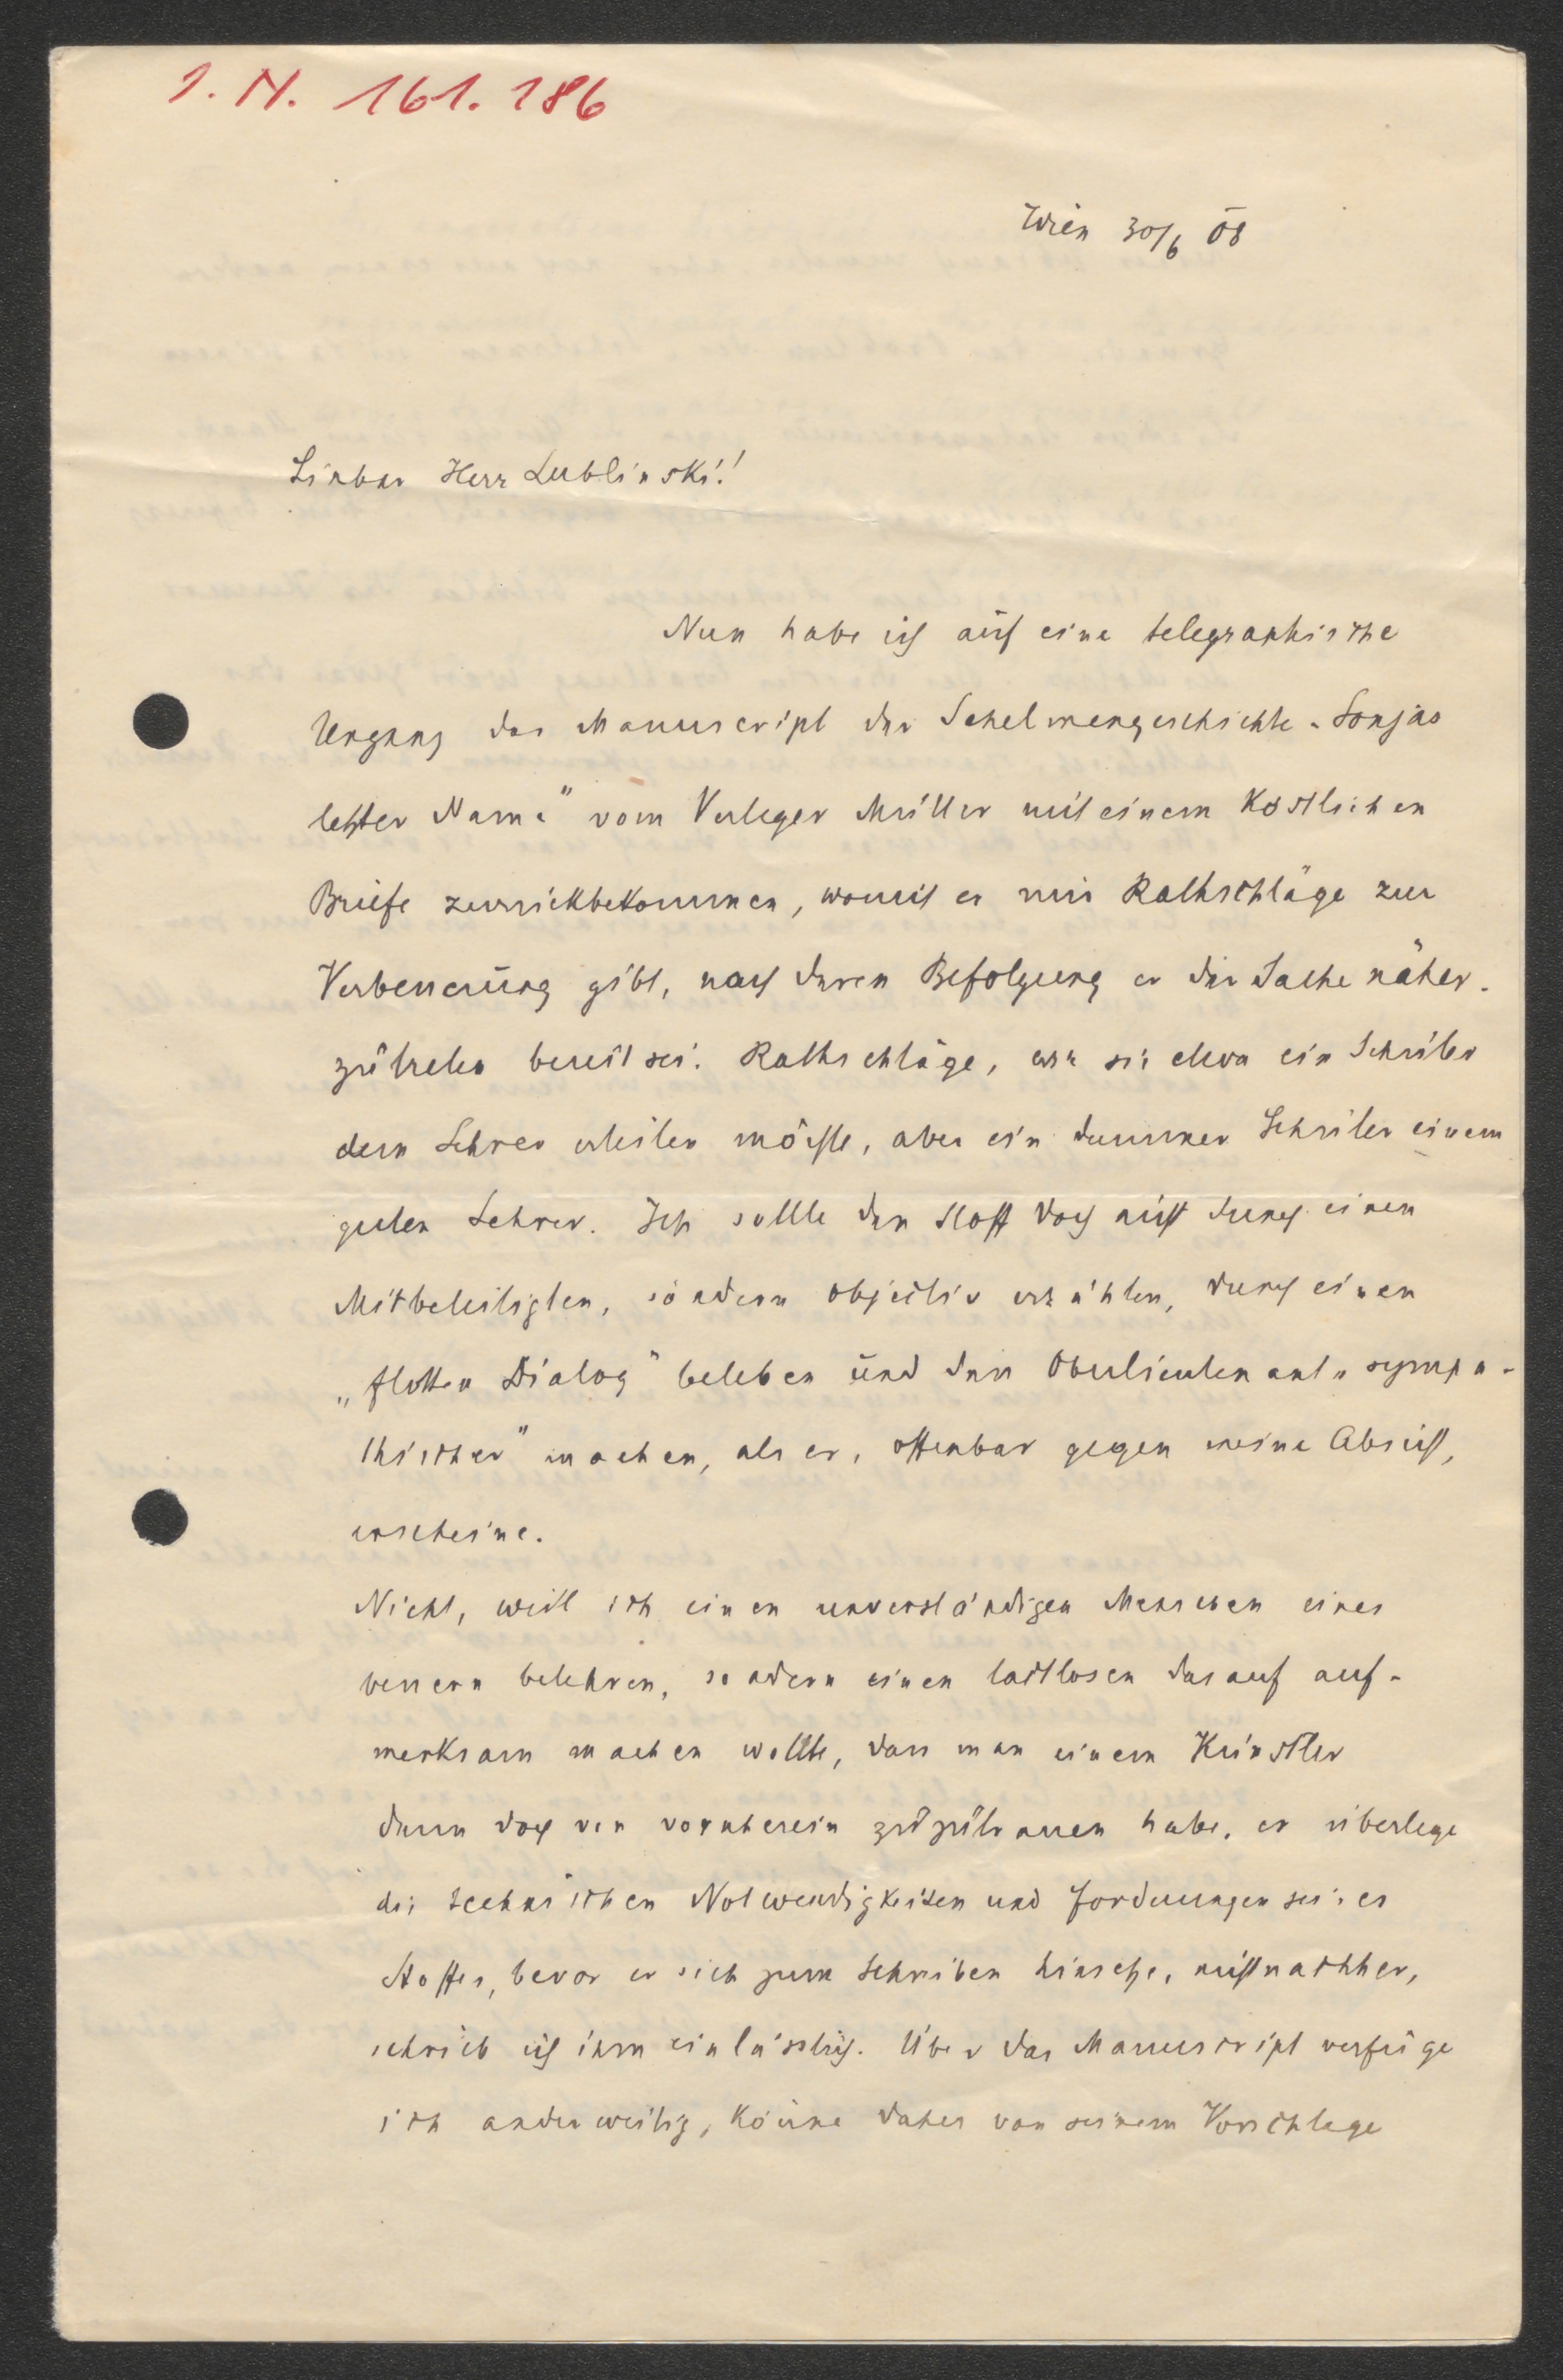 I. N. 161.186
Wien 30/6 08
Lieber Herr Lublinski!
Nun habe ich auf eine telegraphische
Urgenz das Manuscript der Schelmengeschichte „Sonjas
letzter Name" vom Verleger Müller mit einem köstlichen
Briefe zurückbekommen, womit er mir Rathschläge zur
Verbesserung gibt, nach deren Befolgung er der Sache näher-
zutreten bereit sei. Rathschläge, wie sie etwa ein Schüler
dem Lehrer erteilen möchte, aber ein dummer Schüler einem
guten Lehrer. Ich sollte den Stoff doch nicht durch einen
Mitbeteiligten, sondern objectiv erzählen, durch einen
„flotten Dialog" beleben und den Oberlieutenant „sympa-
thischer" machen, als er, offenbar gegen meine Absicht,
erscheine.
Nicht, weil ich einen unverständigen Menschen eines
bessern belehren, sondern einen tactlosen darauf auf-
merksam machen wollte, dass man einem Künstler
denn doch von vornherein zuzutrauen habe, er überlege
die technischen Notwendigkeiten und Forderungen seines
Stoffes, bevor er sich zum Schreiben hinsetze, nicht nachher,
schrieb ich ihm einlässlich. Über das Manuscript verfüge
ich anderweitig, könne daher von seinem Vorschlage